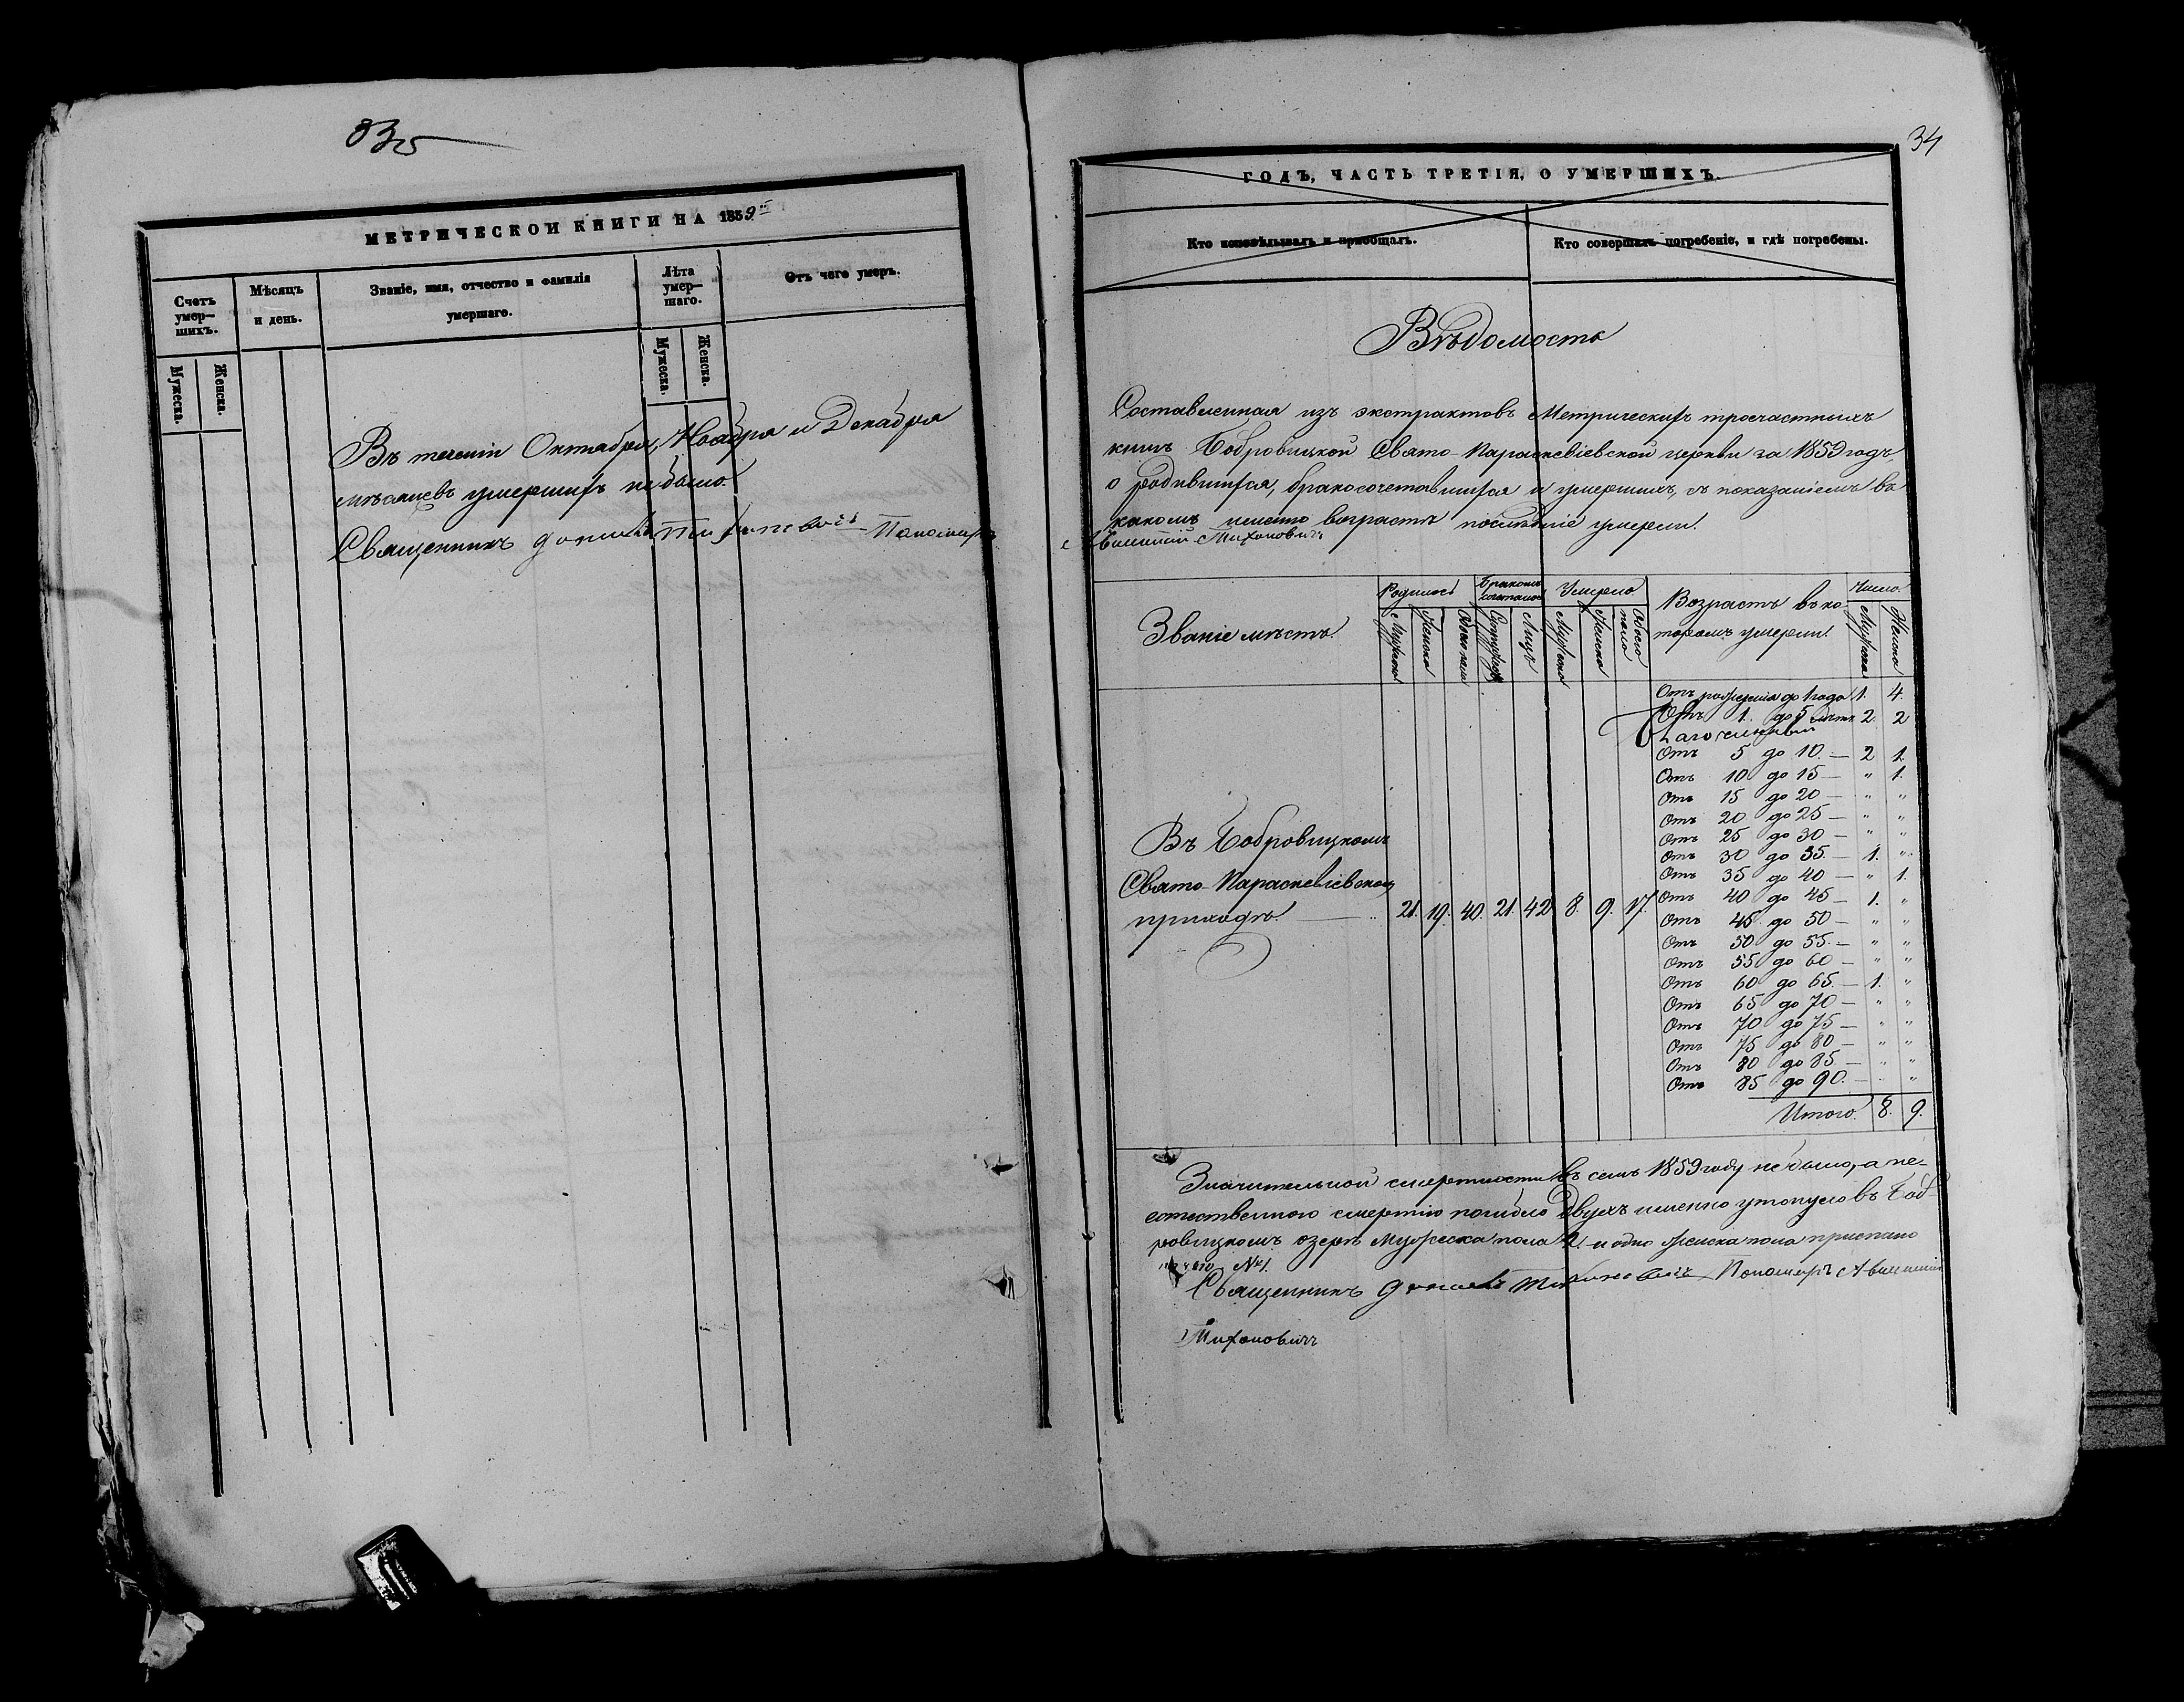 МЕТРИЧЕСКОЙ КНИГИ НА 1859
Счетъ умер-шихъ.
Мужеска.
Женска.
Мѣсяцъ и день.
Званіе, имя, отчество и фамилія умершаго.
Лѣта умер-шаго.
Мужеска.
Женска.
Отъ чего умеръ.
Въ теченіи Октября, Ноября и Декабря
мѣсяцевъ умершихъ не было.
Священникъ Пономарь
34
ГОДЪ, ЧАСТЬ ТРЕТІЯ, О УМЕРШИХЪ.
Кто исповѣдывалъ и пріобщалъ.
Кто совершалъ погребеніе, и гдѣ погребены.
Вѣдомость
Составленная изъ экстрактовъ Метрическихъ троечастныхъ
книгъ Бобровицкой Свято-Параскевіевской церкви за 1859 годъ,
о родившихся, бракосочетавшихся и умершихъ, съ показаніемъ въ
какомъ именно возрастѣ послѣдніе умерли.
Тихоновичъ
Званіе мѣстъ.
Родилось
Мужска
Женска
Обоего пола
Бракомъ сочеталось
Супружествъ
Лицъ
Умерло
Мужска
Женска
Обоего пола
Возрастъ въ ко-
торомъ умерли.
Число.
Мужска
Женска
Отъ рожденія до 1 года 1. 4.
Отъ 1. до 5 лѣтъ 2. 2
Благочинный
Отъ 5 до 10. — 2 1.
Отъ 10 до 15 — " 1.
Отъ 15 до 20 — " "
Отъ 20 до 25 — " "
Отъ 25 до 30 — " "
Отъ 30 до 35. — 1. "
Отъ 35 до 40 — " 1.
Отъ 40 до 45 — 1. "
Отъ 45 до 50 — " "
Отъ 50 до 55. — " "
Отъ 55 до 60 — " "
Отъ 60 до 65. — 1. "
Отъ 65 до 70 — " "
Отъ 70 до 75 — " "
Отъ 75 до 80 — " "
Отъ 80 до 85. — " "
Отъ 85 до 90. — " "
Итого. 8. 9.
Въ Бобровицкомъ
Свято-Параскевіевском
приходѣ. — 21. 19. 40. 21. 42 8. 9. 17.
Значительной смертности въ семъ 1859 году не было, а не-
естественною смертію погибло двухъ именно утонуло въ Боб-
ровицкомъ озерѣ мужеска пола 2. и одно женска пола приспано
№ 1.
Священникъ Пономарь
Тихоновичъ